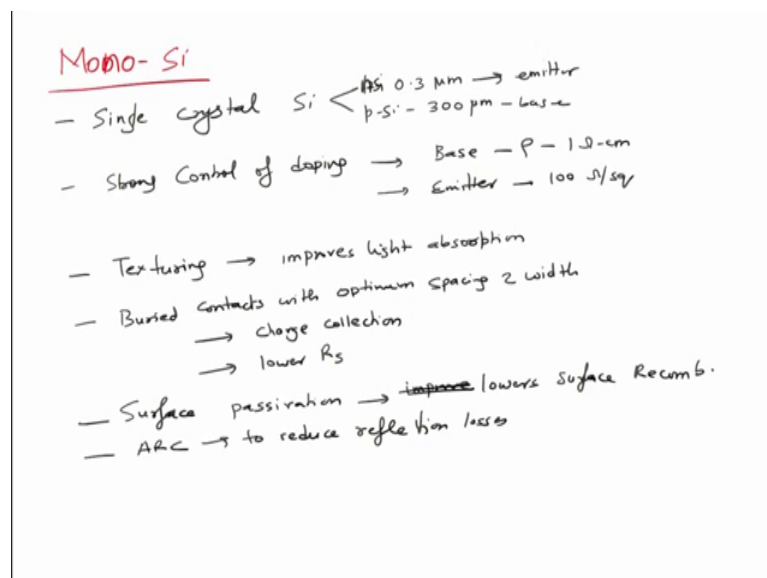 Mono-Si
— Single crystal Si < nsi 0.3 μm → emitter
p-si - 300 μm - base
- Strong Control of doping → Base - ρ - 1 Ω-cm
→ Emitter - 100 Ω/sq
— Texturing → improves light absorption
— Buried contacts with optimum spacing & width
→ charge collection
→ lower Rs
— Surface passivation → lowers surface Recomb.
— ARC → to reduce reflection losses